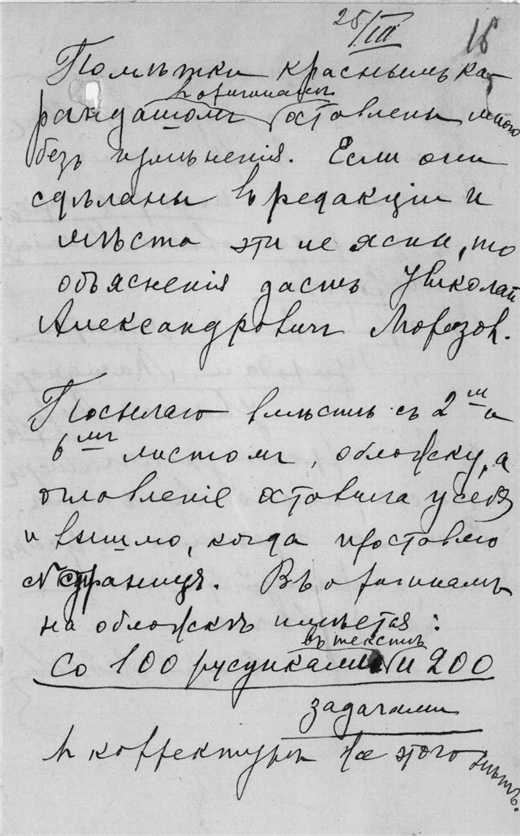 25/III
18
Помѣтки краснымъ ка-
въ оригиналѣ
рандашомъ оставлены мною
безъ измѣненія. Если они
сдѣланы въ редакціи и
мѣста эти не ясны, то
объясненія дастъ Николай
Александровичъ Морозов.
Посылаю вмѣстѣ съ 2 м и
6 мъ листомъ, обложку, а
оглавленіе оставила у себя
и вышлю, когда проставлю
№ страницъ. Въ оригиналѣ
на обложкѣ имѣется:
въ текстѣ
Со 100 рисунками и 200
задачами
въ корректурѣ же этого нѣтъ.